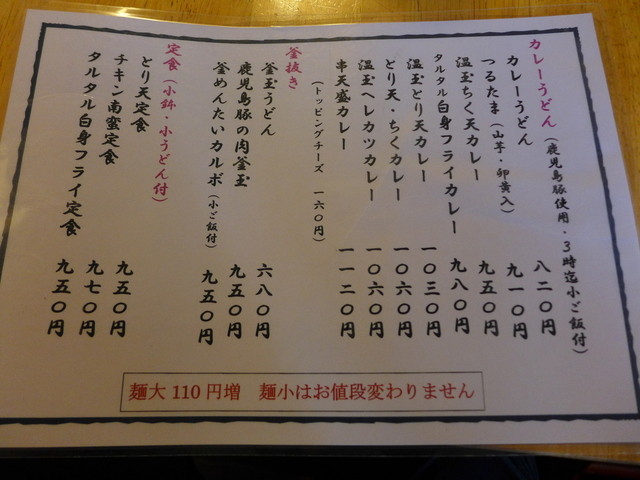 カレーうどん（鹿児島豚使用・3時迄小ご飯付）
カレーうどん 八二〇円
つるたま（山芋・卵黄入） 九一〇円
温玉ちく天カレー 九五〇円
タルタル白身フライカレー 九八〇円
温玉とり天カレー 一〇三〇円
とり天・ちくカレー 一〇六〇円
温玉ヘレカツカレー 一〇六〇円
串天盛カレー 一一二〇円
（トッピングチーズ 一六〇円）
釜抜き
釜玉うどん 六八〇円
鹿児島豚の肉釜玉 九五〇円
釜めんたいカルボ（小ご飯付） 九五〇円
定食（小鉢・小うどん付）
とり天定食 九五〇円
チキン南蛮定食 九七〇円
タルタル白身フライ定食 九五〇円
麺大 110 円増 麺小はお値段変わりません